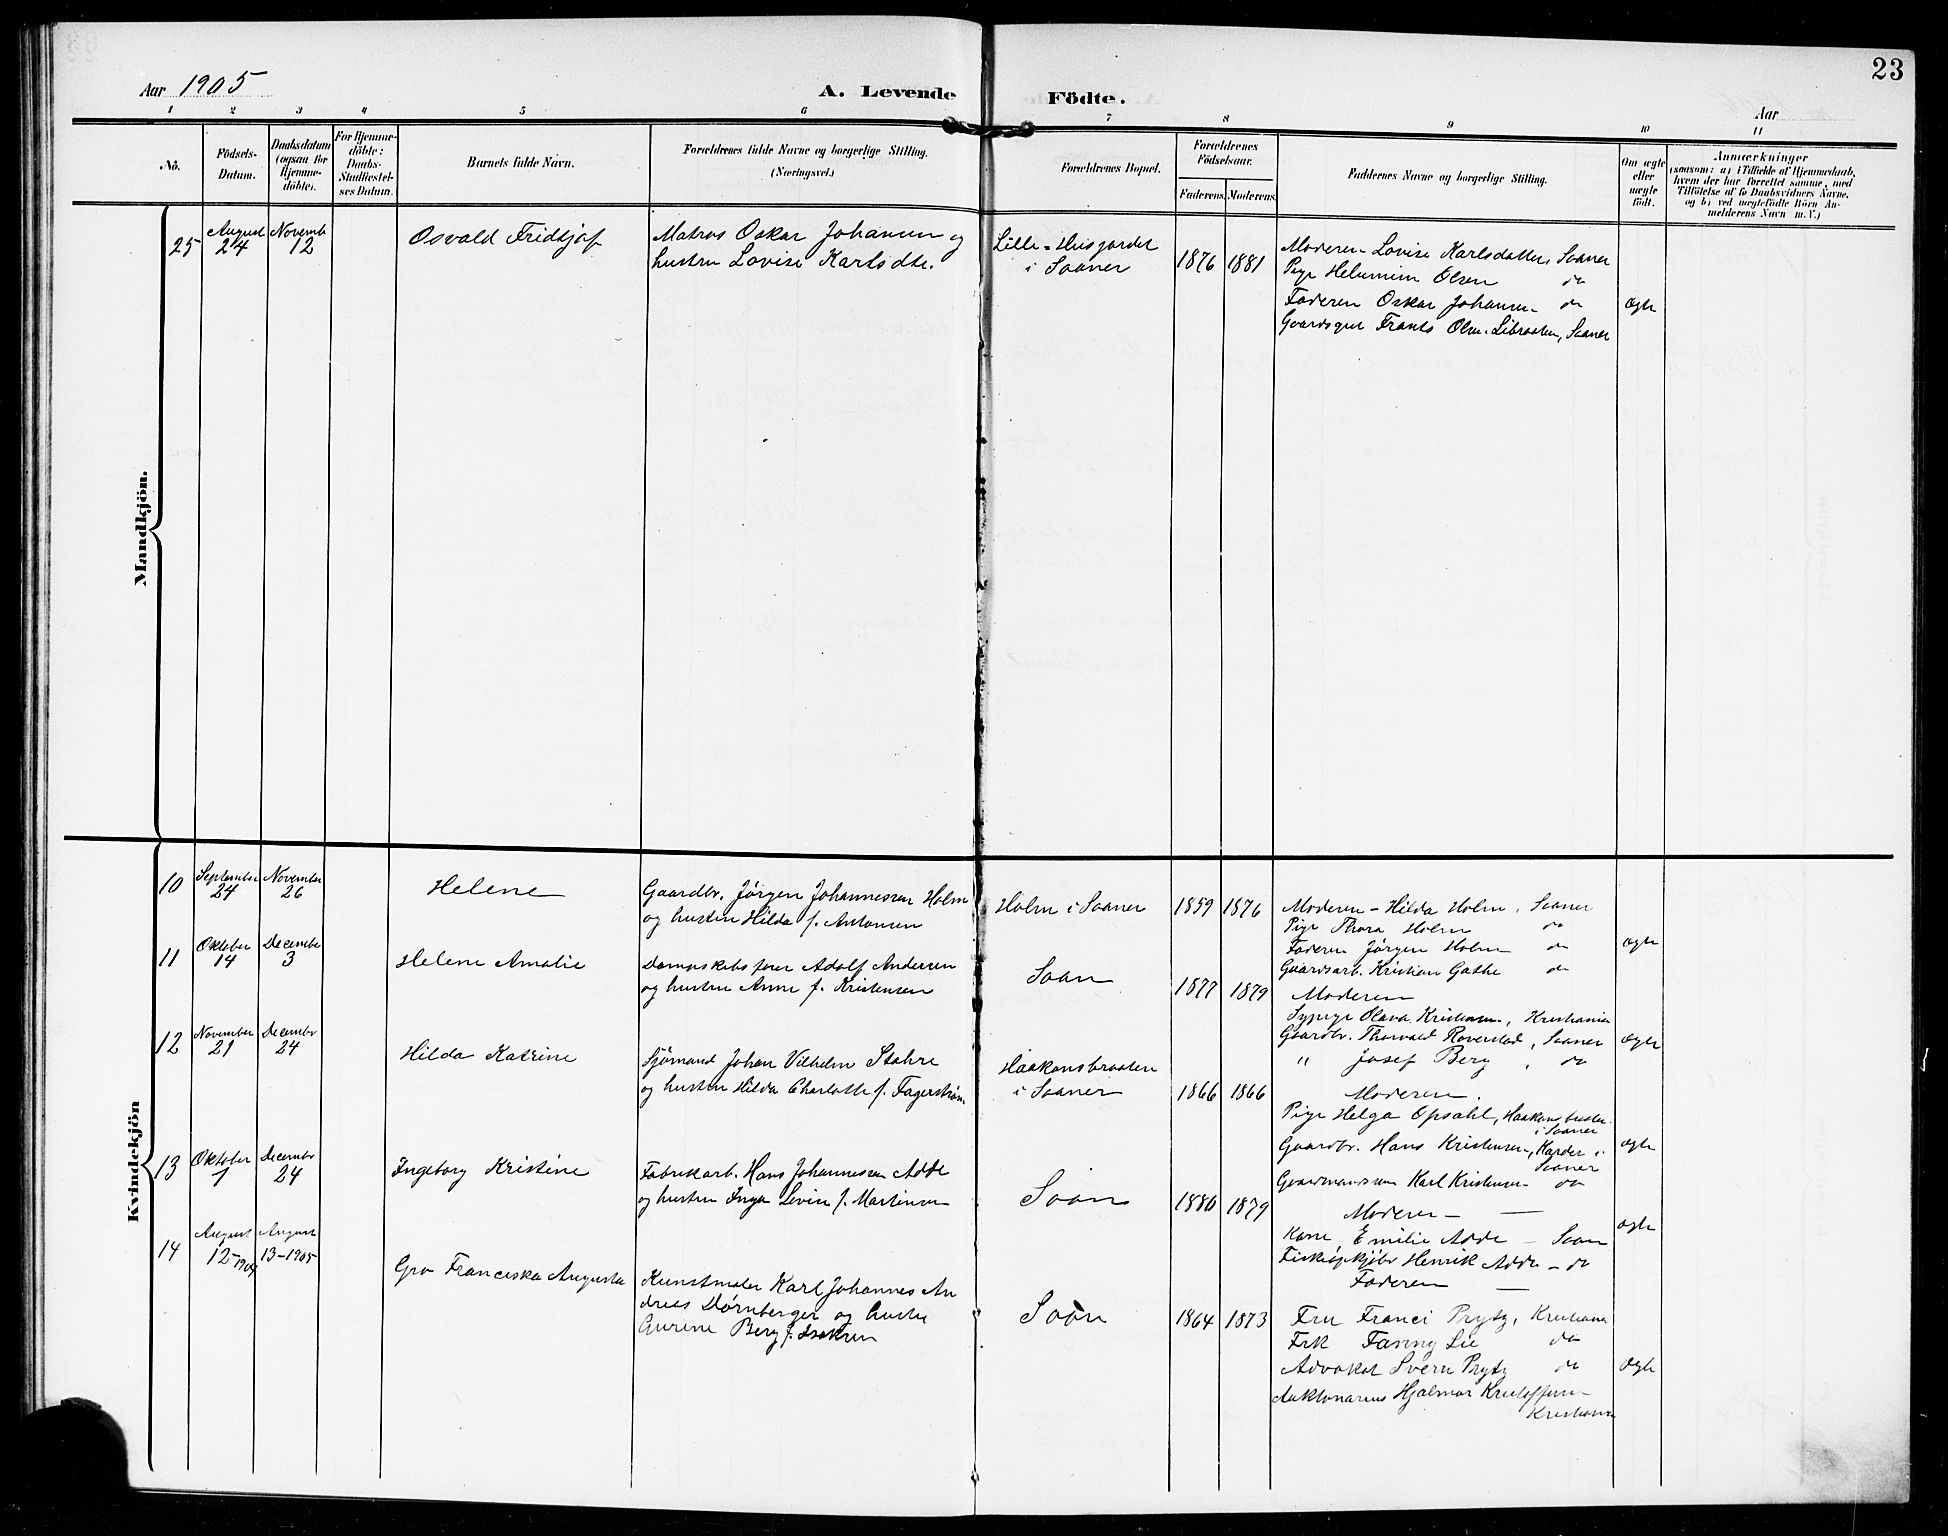 23
Aar 1905
A. Levende Födte.
Aar
1 2 3 4 5 6 7 8 9 10 11
No.
Födsels-Datum.
Daabsdatum (ogsaa for Hjemmedöbte).
For Hjemmedöbte: Daabs-Stadfæstelses Datum.
Barnets fulde Navn.
Forældrenes fulde Navne og borgerlige Stilling.
(Næringsvei.)
Forældrenes Bopæl.
Forældrenes Födselsaar.
Faderens. Moderens.
Faddernes Navne og borgerlige Stilling.
Om ægte eller uægte födt.
Anmærkninger
(saasom: a) i Tilfælde af Hjemmedaab,
hvem der har forrettet samme, med
Tilföielse af to Daabsvidners Navne,
og b) ved uægtefödte Börn Anmelderens Navn m. V.)
Mandkjön.
25
August 24
Novemb 12
Osvald Fridtjof
Matros Oskar Johansen og
hustru Lovise Karlsdtr.
Lille-Huisjordet
i Saaner
1876 1881
Moderen Lovise Karlsdatter, Saaner
Pige Helenmine Olsen do
Faderen Oskar Johansen do
Gaardsgut Frants Olsen Libraaten, Saaner
Ægte
Kvindekjön
10
September 24
November 26
Helene
Gaardbr. Jörgen Johannessen Holm
og hustru Hilda f. Antonsen
Holm i Saaner
1859 1876
Moderen - Hilda Holm, Saaner
Pige Thora Holm do
Faderen Jörgen Holm do
Gaardsarb. Kristian Gathe do
Ægte
11
Oktober 14
Decembe 3
Helene Amalie
Dampskibsförer Adolf Andersen
og hustru Anne f. Kristensen
Soon
1877 1879
Moderen
Sypige Olava Kristensen, Kristiania
Gaardbr. Thorvald Roverstad, Saaner
" Josef Berg, do
Ægte
12
November 21
Decembr 24
Hilda Katrine
Sjömand Johan Vilhelm Stahre
og hustru Hilda Charlotte f. Fagerström
Haakonsbraaten
i Saaner
1866 1866
Moderen.
Pige Helga Opsahl, Haakonsbraaten
i Saaner
Gaardbr. Hans Kristensen, Karder i
Saaner
Gaardmandssøn Karl Kristensen do
Ægte
13
Oktober 1
Decembr 24
Ingeborg Kristine
Fabrikarb. Hans Johannessen Adde
og hustru Inga Lovise f. Martinsen
Soon
1880 1879
Moderen —
Kone Emilie Adde - Soon
Fiskeopkjöbr Henrik Adde - do
Faderen —
Ægte
14
August 12-1904
August 13-1905
Gro Franciska Augusta
Kunstmaler Karl Johannes An
dreas Dörnberger og hustru
Gurine Berg f. Isaksen
Soon
1864 1873
Fru Franci Prytz, Kristiania
Frk Fanny Lie do
Advokat Sverre Prytz do
Auktionarius Hjalmar Kristoffersen
Kristiania
Ægte